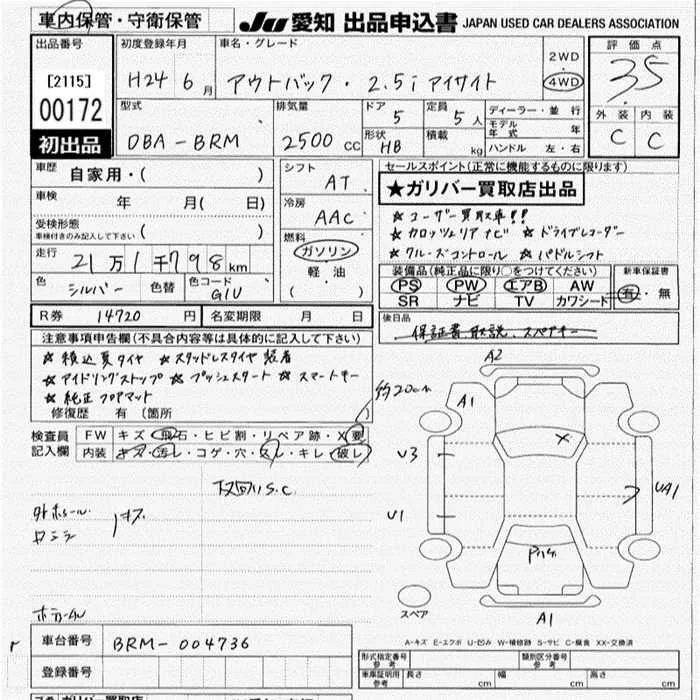 車内保管・守衛保管
JU 愛知 出品申込書 JAPAN USED CAR DEALERS ASSOCIATION
出品番号 初度登録年月 車名・グレード 評価点
[2115] H24 6月 アウトバック・2.5i アイサイト 2WD 4WD 3.5
00172 型式 排気量 ドア 5 定員 5人 ディーラー・並行 外装 内装
初出品 DBA-BRM 2500 CC 形状 HB 積載 kg モデル年式 年 C C
ハンドル 左・右
車歴 自家用・( ) シフト AT セールスポイント(正常に機能するものに限ります)
車検 年 月( 日) 冷房 AAC ★ガリバー買取店出品
受検形態 車検付きのみ記入して下さい ( ) ☆ユーザー買取車!!
走行 21万1千798km 燃料 ガソリン ☆カロッツェリアナビ ☆ドライブレコーダー
色 シルバー 色替 色コード G1U 軽油 ( ) ☆クルーズコントロール ☆パドルシフト
装備品(純正品に限り○をつけてください) 新車保証書
PS PW エアB AW 有・無
SR ナビ TV カワシート
R券 14720 円 名変期限 月 日 後日品
保証書 取説、スペアキー
注意事項申告欄(不具合内容等は具体的に記入して下さい)
☆積込夏タイヤ ☆スタッドレスタイヤ装着
☆アイドリングストップ ☆プッシュスタート ☆スマートキー
☆純正フロアマット
修復歴 有(箇所 )
約20cm
検査員記入欄 FW キズ・飛石・ヒビ割・リペア跡・X要
内装 キズ・汚レ・コゲ・穴・スレ・キレ・破レ
下回りS.C.
A2
A1
X
U3
U1
UA1
A1
スペア
A-キズ E-エクボ U-凹み W-補修跡 S-サビ C-腐食 XX-交換済
車台番号 BRM-004736 形式指定番号 参考 類別区分番号 参考
登録番号 車庫証明用 参考 長さ cm 幅 cm 高さ cm
ガリバー買取店